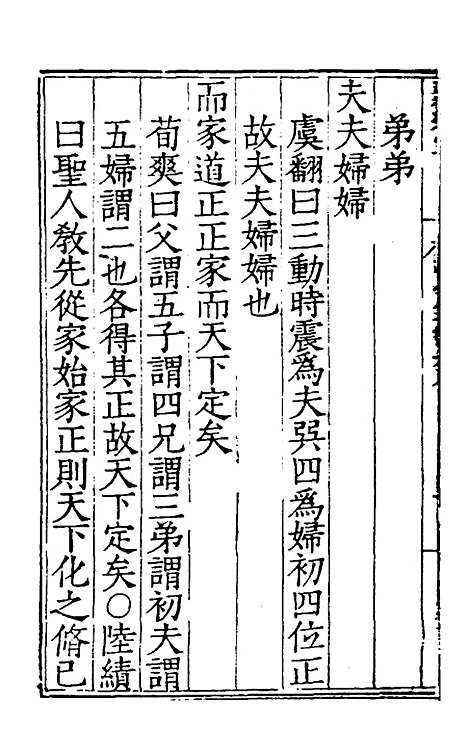 弟弟
夫夫婦婦
虞翻曰三動時震爲夫巽四爲婦初四位正
故夫夫婦婦也
而家道正正家而天下定矣
荀爽曰父謂五子謂四兄謂三弟謂初夫謂
五婦謂二也各得其正故天下定矣○陸績
曰聖人敎先從家始家正則天下化之脩已